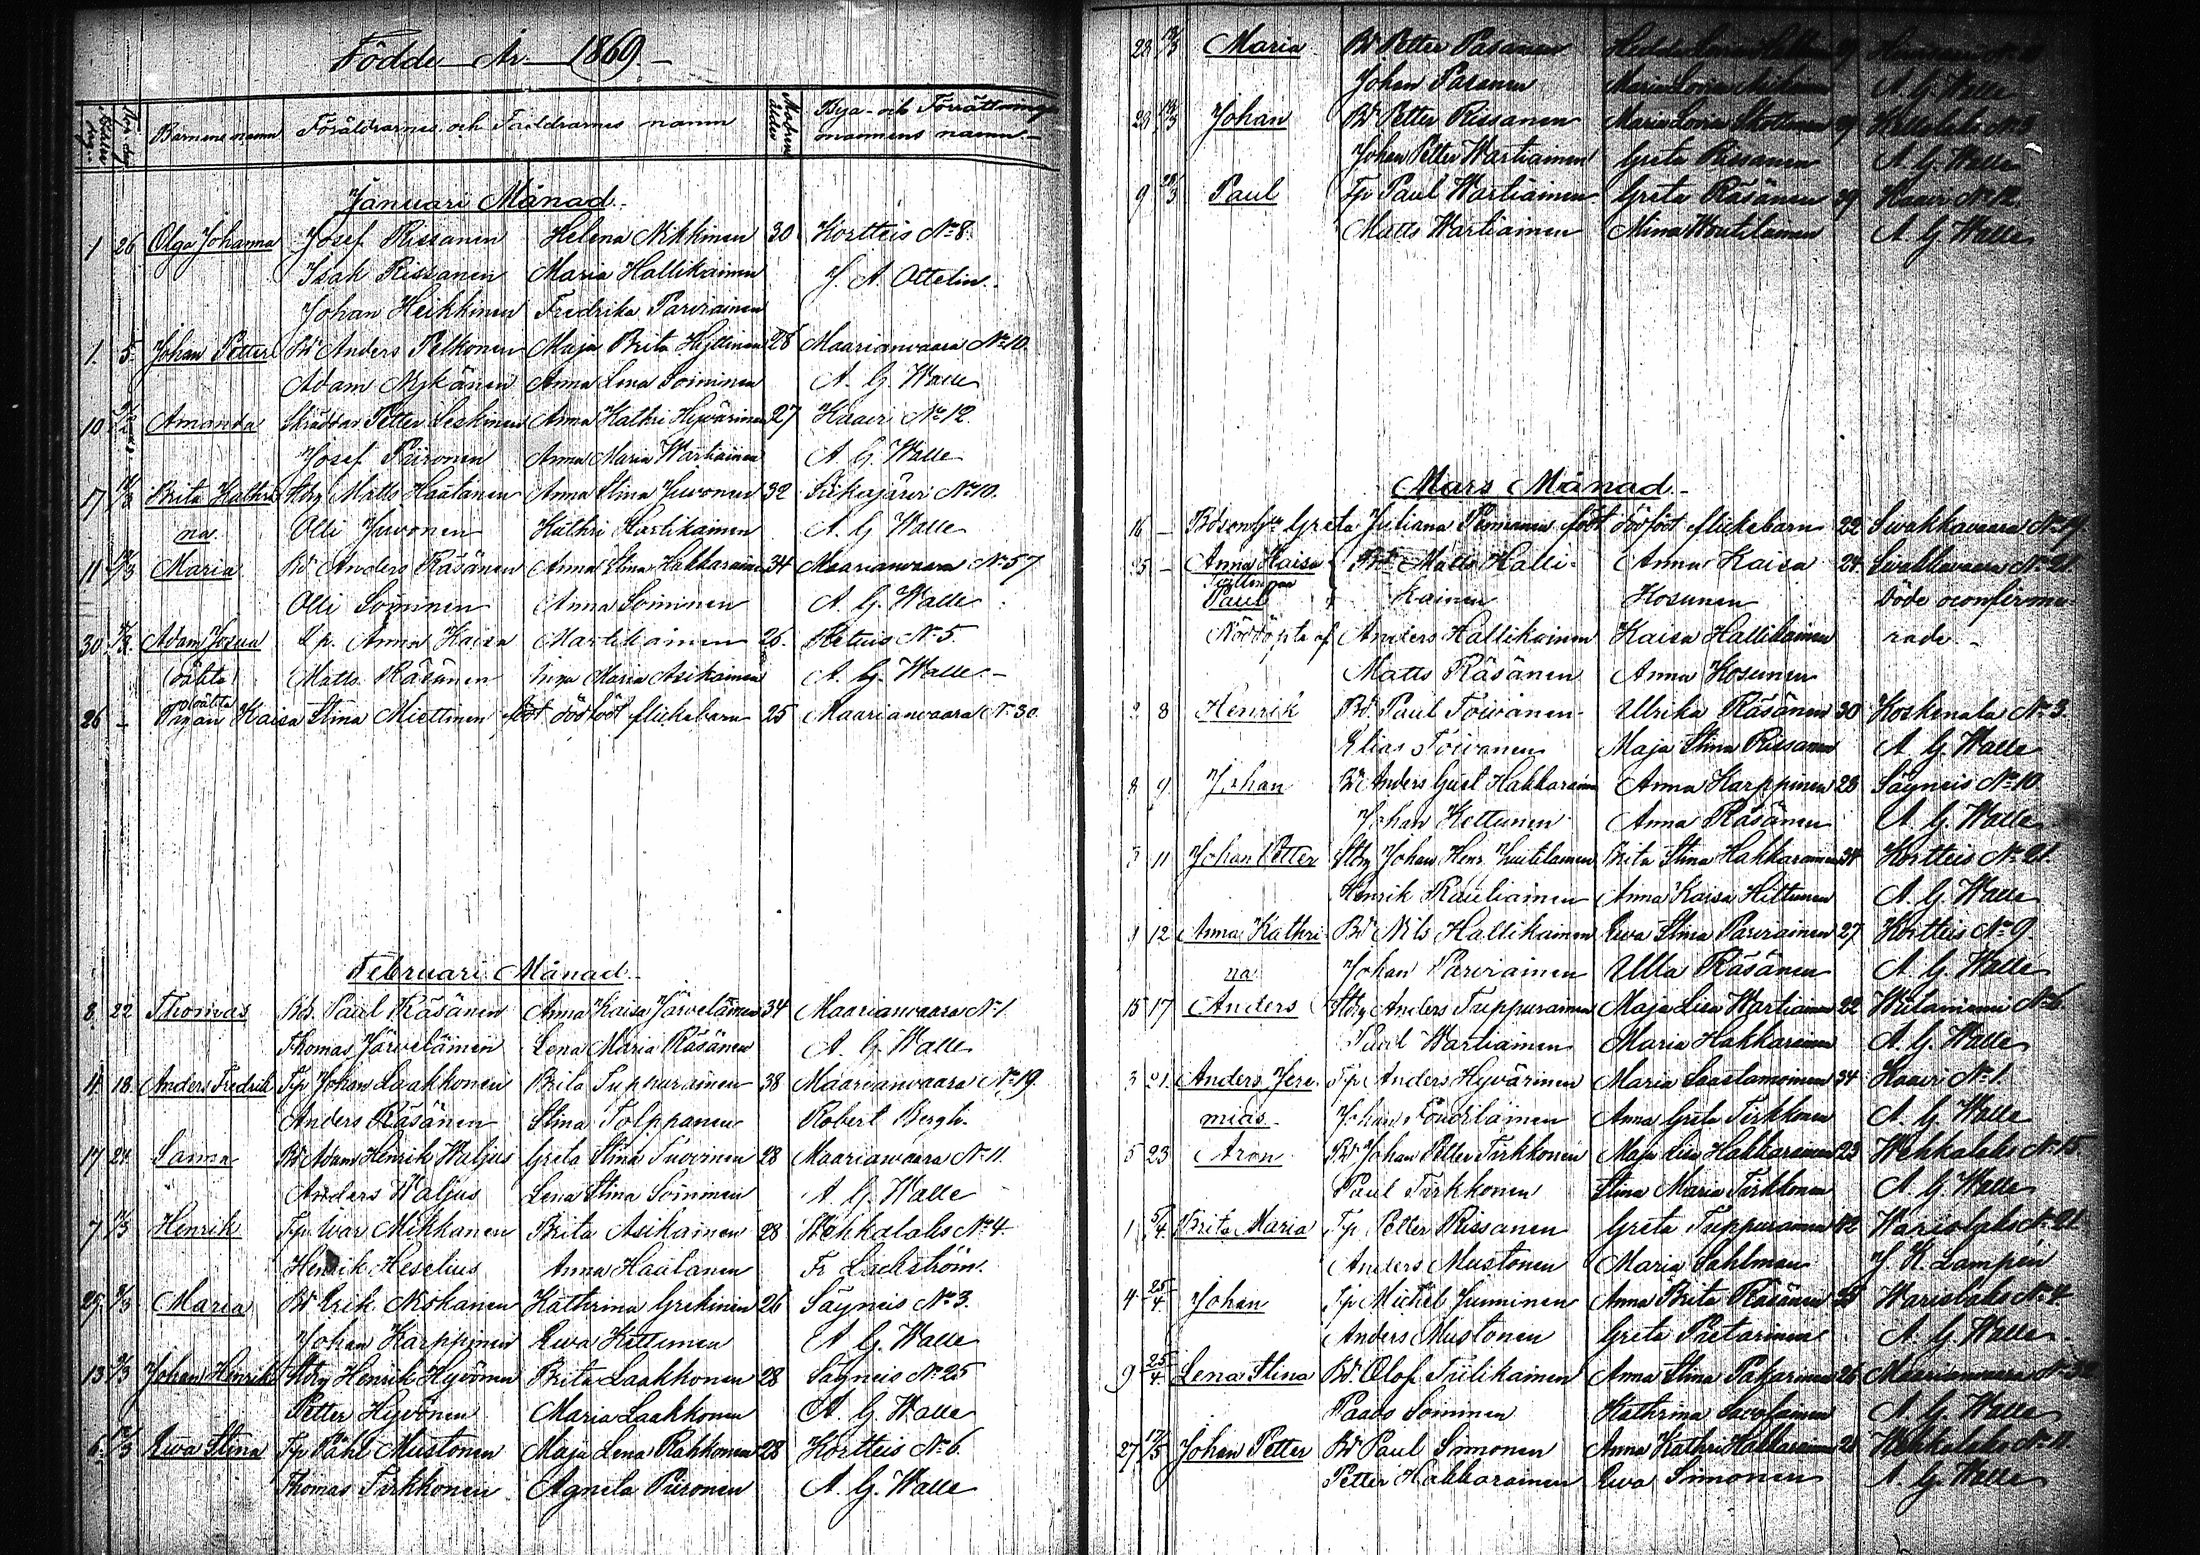 Födde År 1869
Barnens namn Föräldrarnes och Faddrarnes namn Modrens ålder Bya- och Förrättnings
mannens namn
Januari Månad
1 26 Olga Johanna Josef Rissanen Helena Nikkinen 30 Kortteis No 8.
Isak Rissanen Maria Hallikainen J. A. Ottelin.
Johan Heikkinen Fredrika Parviainen
1. 5. Johan Petter Bd Anders Pelkonen Maja Brita Hyttinen 28 Maarianvaara No 10.
Adam Nykänen Anna Lena Soininen A. G. Walle
10 Amanda Skräddar Petter Leskinen Anna Kathri Hyvärinen 27 Kaavi No 12.
Josef Piironen Anna Maria Wartiainen A. G. Walle
17 Brita Kathri Matts Haatanen Anna Stina Juvonen 32 Siikajärvi No 10.
na. Olli Juvonen Kathri Martikainen A. G. Walle
11 Maria Bd Anders Räsänen Anna Stina Hakkarainen 34 Maarianvaara No 57
Olli Soininen Anna Soininen A. G. Walle
30 Adam Josua Anna Kaisa Martikainen 26. No 5.
(oäkta) Matts Räsänen Maria Asikainen A. G. Walle
oäkta
26 Pigan Kaisa Stina Miettinen födt dödfödt flickebarn 25 Maarianvaara No 30.
Februari Månad
8. 22 Thomas Bd. Paul Räsänen Anna Kaisa Järveläinen 34 Maarianvaara No 1.
Thomas Järveläinen Lena Maria Räsänen A. G. Walle
11. 18. Anders Fredrik Tp Johan Laakkonen Brita Tuppurainen 38 Maarianvaara No 19.
Anders Räsänen Stina Tolppanen Robert Bergh.
17 24 Sanna Bd Adam Henrik Waljus Greta Stina Tuovinen 28 Maarianvaara No 11.
Anders Waljus Lena Stina Soininen A. G. Walle
7 Henrik Tp Ivar Mikkanen Brita Asikainen 28 Wehkalaks No 4.
Henrik Heselius Anna Haatanen Fr. Lackström.
25 Maria Bd Erik Niskanen Kathrina 26 Säyneis No 3.
Johan Karppinen Ewa Kettunen A. G. Walle
13 Johan Henrik Henrik Hyvönen Brita Laakkonen 28 Säyneis No 25
Petter Hyvönen Maria Laakkonen A. G. Walle
6. Ewa Stina Tp Påhl Mustonen Maja Lena Rahkonen 28 Kortteis No 6.
Thomas Tirkkonen Agneta Piironen A. G. Walle
23 Maria Bd Petter Pasanen
Johan Pasanen Maria Lovisa A. G. Walle
Johan Bd Petter Rissanen Maria Lovisa
Johan Petter Wartiainen Greta Rissanen A. G. Walle
9 Paul Tp Paul Wartiainen Greta Räsänen 39 Kaavi No 12.
Matts Wartiainen Mina A. G. Walle
Mars Månad
16 Greta Juliana födt dödfödt flickebarn 22 Sivakkavaara No 19
25 Anna Kaisa Bd Matts Halli- Anna Kaisa 24. Sivakkavaara No 21
Tvillingar
Paul kainen Kosunen Döde oconfirme-
Nöddöpta af Anders Hallikainen Kaisa Hallikainen rade
Matts Räsänen Anna Kosunen
2 8 Henrik Bd. Paul Toivanen Ulrika Räsänen 30 Koskenala No 3.
Elias Toivanen Maja Stina Rissanen A. G. Walle
8 9 Johan Bd Anders Gust Hakkarainen Anna Karppinen 28 Säyneis No 10
Johan Kettunen Anna Räsänen A. G. Walle
3 11 Johan Petter Johan Henr. Brita Stina Hakkarainen 34 Kortteis No 21.
Henrik Rautiainen Anna Kaisa Hiltunen A. G. Walle
9 12 Anna Kathri- Bd Nils Hallikainen Ewa Stina Parviainen 27 Kortteis No 9
na Johan Parviainen Ulla Räsänen A. G. Walle
15 17 Anders Anders Tuppurainen Maja Lisa Wartiainen 22 No 6.
Paul Wartiainen Maria Hakkarainen A. G. Walle
3 21. Anders Jere Tp Anders Hyvärinen Maria Saastamoinen 34 Kaavi No 1.
mias. Johan Anna Greta Tirkkonen A. G. Walle
5 23 Aron Bd Johan Petter Tirkkonen Maja Lisa Hakkarainen 23 Wehkalaks No 15
Paul Tirkkonen Stina Maria Tirkkonen A. G. Walle
1 5/4 Brita Maria Tp Petter Rissanen Greta Tuppurainen 42 Wariolaks No 21
Anders Mustonen Maria Sahlman J. K. Lampén
4 25/4 Johan Tp Mickel Junninen Anna Brita Räsänen Wariolaks No 4.
Anders Mustonen Greta Pietarinen A. G. Walle
9 25/4 Lena Stina Bd. Olof Tiilikainen Anna Stina Pakarinen 26 Maarianvaara
Paavo Soininen Kathrina A. G. Walle
27 17/5 Johan Petter Bd Paul Simonen Anna Kathri Hakkarainen Wehkalaks No 11
Petter Hakkarainen Ewa Simonen A. G. Walle